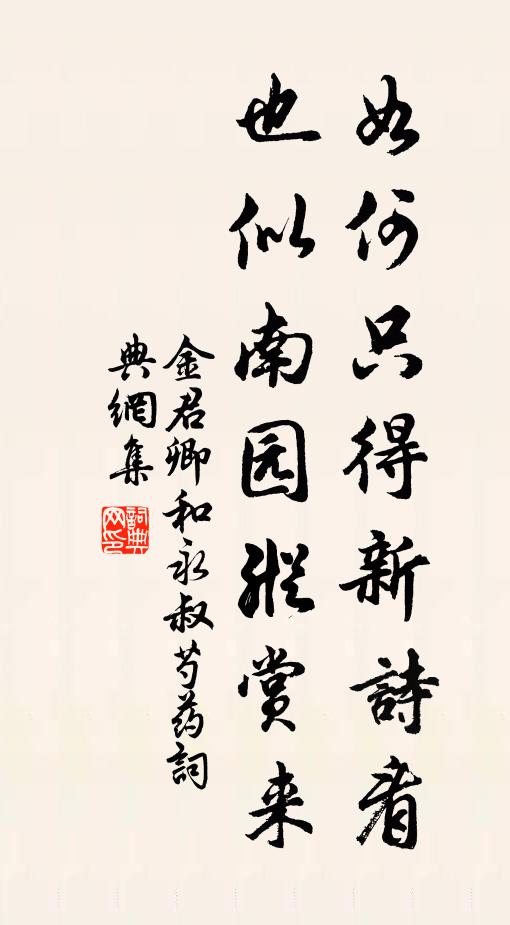 如何只得新詩看
也似南园縱赏来
金君卿和永叔芍药詞
典網集
詞典網印